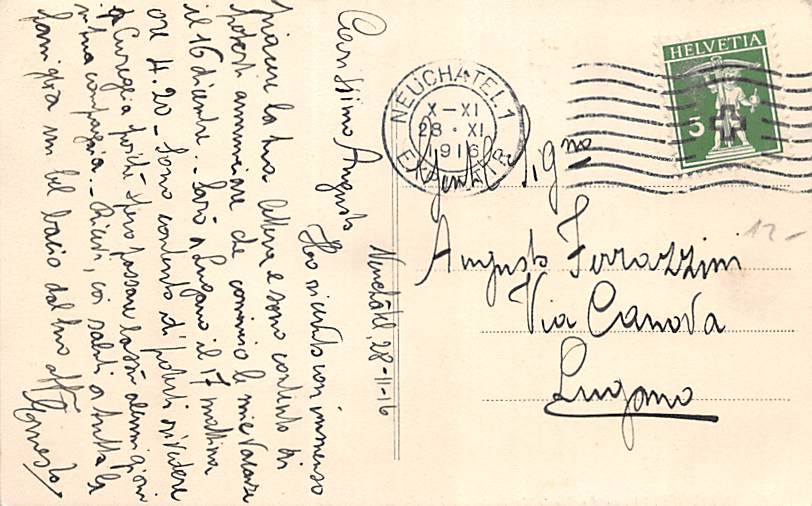 Neuchâtel, 28-11-16
Carissimo Augusto
Ho ricevuto con immenso
piacere la tua lettera e sono contento di
poterti annunciare che comincio le mie vacanze
il 16 dicembre.. Sarò a Lugano il 17 mattina
ore 4.20 - Sono contento di poterti rivedere
a Cureglia poichè spero passare lassù alcuni giorni
in tua compagnia.. Ricevi, coi saluti a tutta la
famiglia un bel bacio dal tuo aff.
Ernesto
HELVETIA
5
NEUCHATEL 1
X-XI
28·XI
1916
Gentil Signo
Augusto Ferrazzini
Via Canova
Lugano
12-